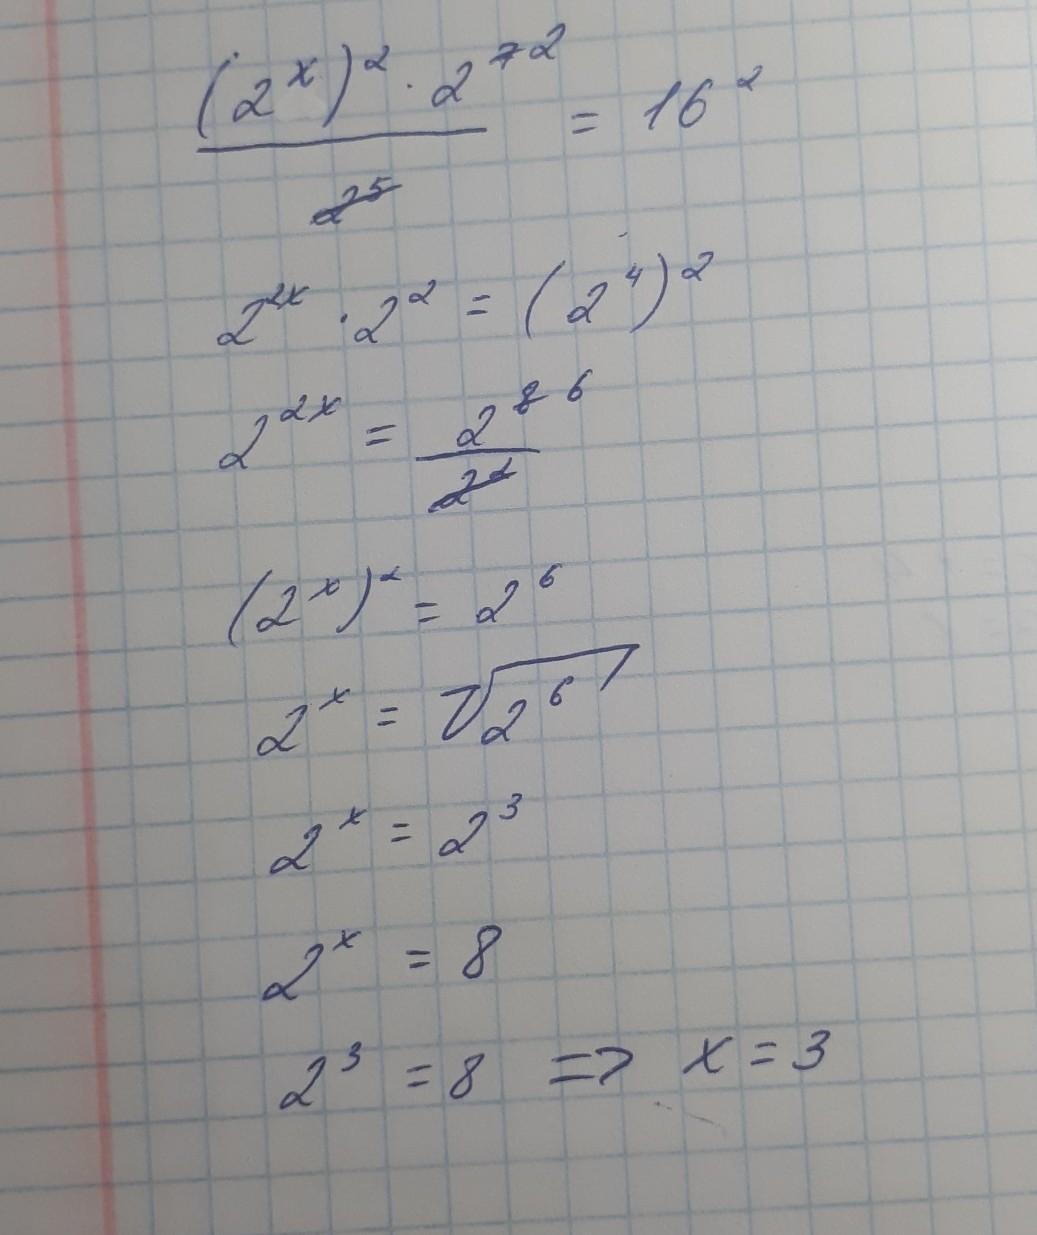 (2^x)^2 · 2^7 2 / 2^5 = 16^2
2^2x · 2^2 = (2^4)^2
2^2x = 2^8 6 / 2^2
(2^x)^2 = 2^6
2^x = √2^6
2^x = 2^3
2^x = 8
2^3 = 8 => x = 3